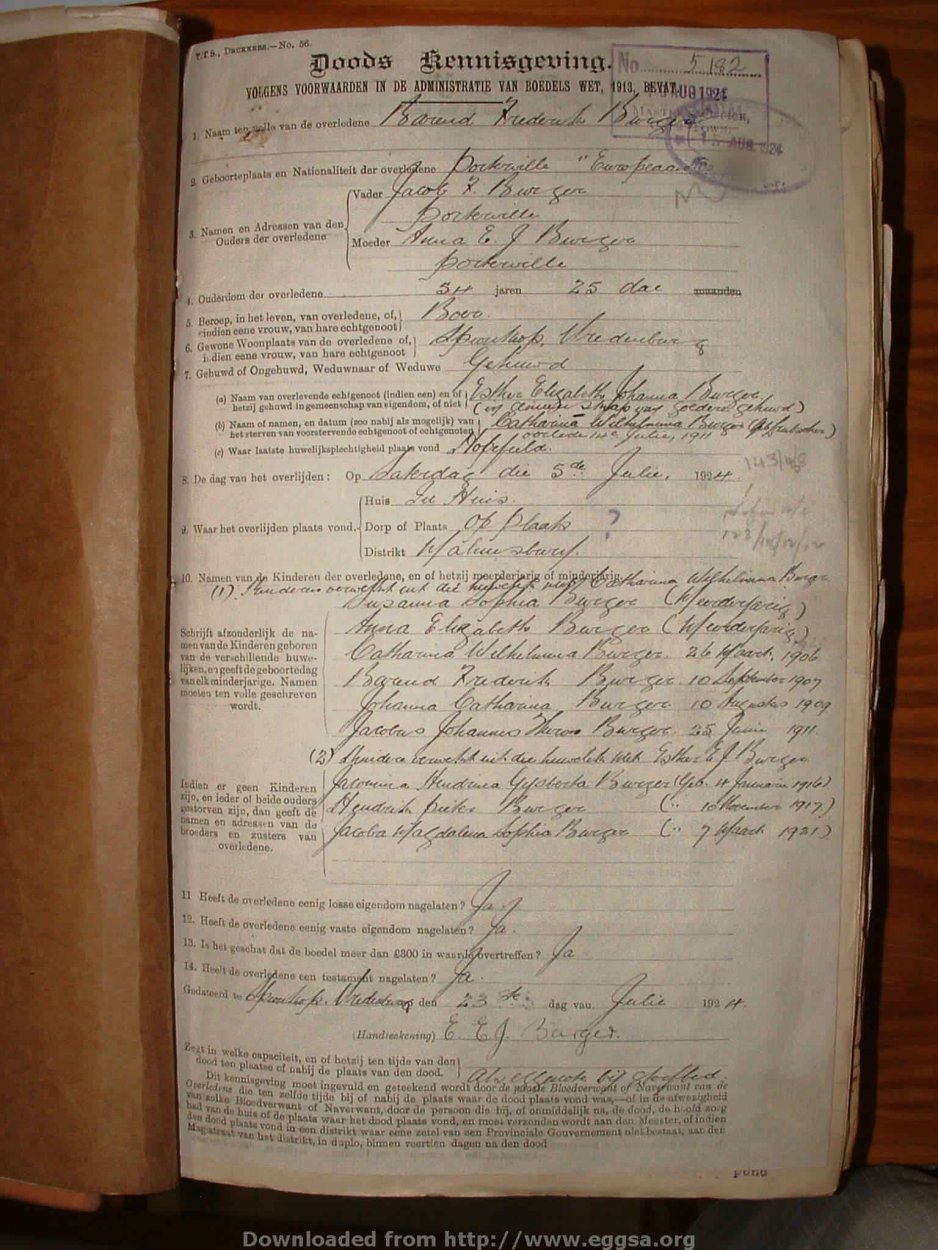 T.T.S., DRUKKERS.—No. 56.
Doods Kennisgeving.
No. 5182
VOLGENS VOORWAARDEN IN DE ADMINISTRATIE VAN BOEDELS WET, 1913, BEVAT.
AUG 1924
15 AUG 1924
1. Naam ten volle van de overledene Barend Frederik Burger
2. Geboorteplaats en Nationaliteit der overledene Porterville "Europeaan
3. Namen en Adressen van den Ouders der overledene
Vader Jacob F. Burger
Porterville
Moeder Anna E. J. Burger
Porterville
4. Ouderdom der overledene 54 jaren 25 dae maanden
5. Beroep, in het leven, van overledene, of, indien eene vrouw, van hare echtgenoot Boer.
6. Gewone Woonplaats van de overledene of, indien eene vrouw, van hare echtgenoot Spionkop, Vredenburg
7. Gehuwd of Ongehuwd, Weduwnaar of Weduwe Gehuwd
(a) Naam van overlevende echtgenoot (indien een) en of hetzij gehuwd in gemeenschap van eigendom, of niet Esther Elizabeth Johanna Burger
(in gemeenschap van goedere gehuwd)
(b) Naam of namen, en datum (zoo nabij als mogelijk) van het sterven van voorstervende echtgenoot of echtgenoten Catharina Wilhelmina Burger
overlede 14e Julie, 1911
(c) Waar laatste huwelijksplechtigheid plaats vond Hopefield.
8. De dag van het overlijden: Op Saterdag die 5de Julie, 1924.
9. Waar het overlijden plaats vond.
Huis In Huis.
Dorp of Plaats Op Plaats ?
Distrikt Malmesbury.
10. Namen van de Kinderen der overledene, en of hetzij meerderjarig of minderjarig.
(1) Kinders verwekt uit die huwelik met Catharina Wilhelmina Burger
Susanna Sophia Burger (Meerderjarig)
Anna Elizabeth Burger (Meerderjarig)
Catharina Wilhelmina Burger. 26 Maart, 1906
Barend Frederik Burger. 10 September 1907
Johanna Catharina Burger 10 Augustus 1909
Jacobus Johannes Theron Burger 25 Junie 1911
Schrijft afzonderlijk de namen van de Kinderen geboren van de verschillende huwelijken, en geeft de geboortedag van elk minderjarige. Namen moeten ten volle geschreven wordt.
(2) Kinders verwekt uit die huwelik met Esther E J Burger
Jacomina Hendrina Gysberta Burger (Geb. 4 Januarie 1916)
Hendrik Burger (" 10 November 1917)
Jacoba Magdalena Sophia Burger (" 7 Maart 1921)
Indien er geen Kinderen zijn, en ieder of beide ouders gestorven zijn, dan geeft de namen en adressen van de broeders en zusters van overledene.
11 Heeft de overledene eenig losse eigendom nagelaten? Ja.
12. Heeft de overledene eenig vaste eigendom nagelaten? Ja.
13. Is het geschat dat de boedel meer dan £300 in waarde overtreffen? Ja
14. Heeft de overledene een testament nagelaten? Ja.
Gedateerd te Spionkop, Vredenburg den 23ste dag van Julie 1924.
(Handteekening) E. E. J. Burger.
Zegt in welke capaciteit, en of hetzij ten tijde van den dood ten plaatse of nabij de plaats van den dood. Als eggenote bij sterfbed.
Dit kennisgeving moet ingevuld en geteekend wordt door de naaste Bloedverwant of Naverwant van de
Overledene die ten zelfde tijde bij of nabij de plaats waar de dood plaats vond was,—of in de afwezigheid
van zulke Bloedverwant of Naverwant, door de persoon die bij, of onmiddelijk na, de dood, de hoofd zorg
had van de huis of de plaats waar het dood plaats vond, en moet verzonden wordt aan den Meester, of indien
den dood plaats vond in een distrikt waar eene zetel van een Provinciale Gouvernement niet bestaat, aan den
Magistraat van het distrikt, in duplo, binnen veertien dagen na den dood
Downloaded from http://www.eggsa.org